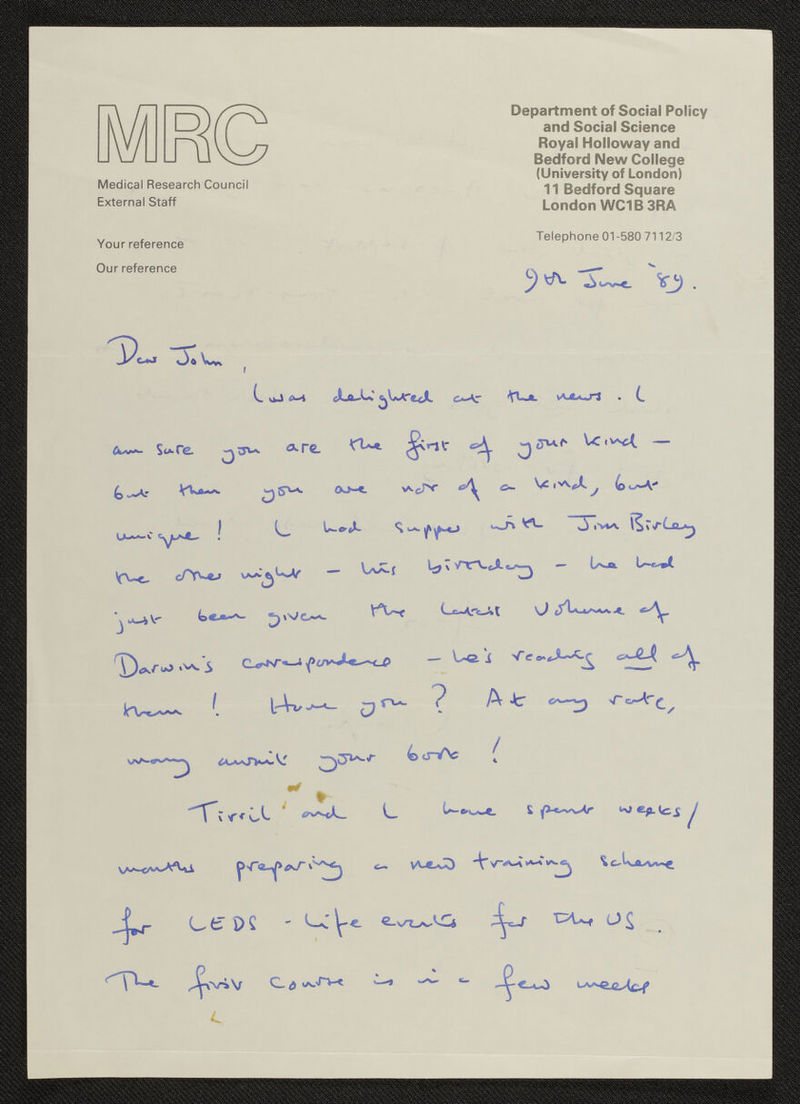 MRC
Medical Research Council
External Staff
Your reference
Our reference
Department of Social Policy
and Social Science
Royal Holloway and
Bedford New College
(University of London)
11 Bedford Square
London WC1B 3RA
Telephone 01-580 7112/3
9th June '89.
Dear John,
I was delighted at the news. I
am sure you are the first of your kind —
but then you are not of a kind, but
unique! I had supper with Jim Birley
the other night — his birthday — he had
just been given the latest volume of
Darwin's correspondence — he's reading all of
them! Have you? At any rate,
many await your book!
Tirril and I have spent weeks/
months preparing a new training scheme
for LEDS - Life events for the US.
The first course is in a few weeks